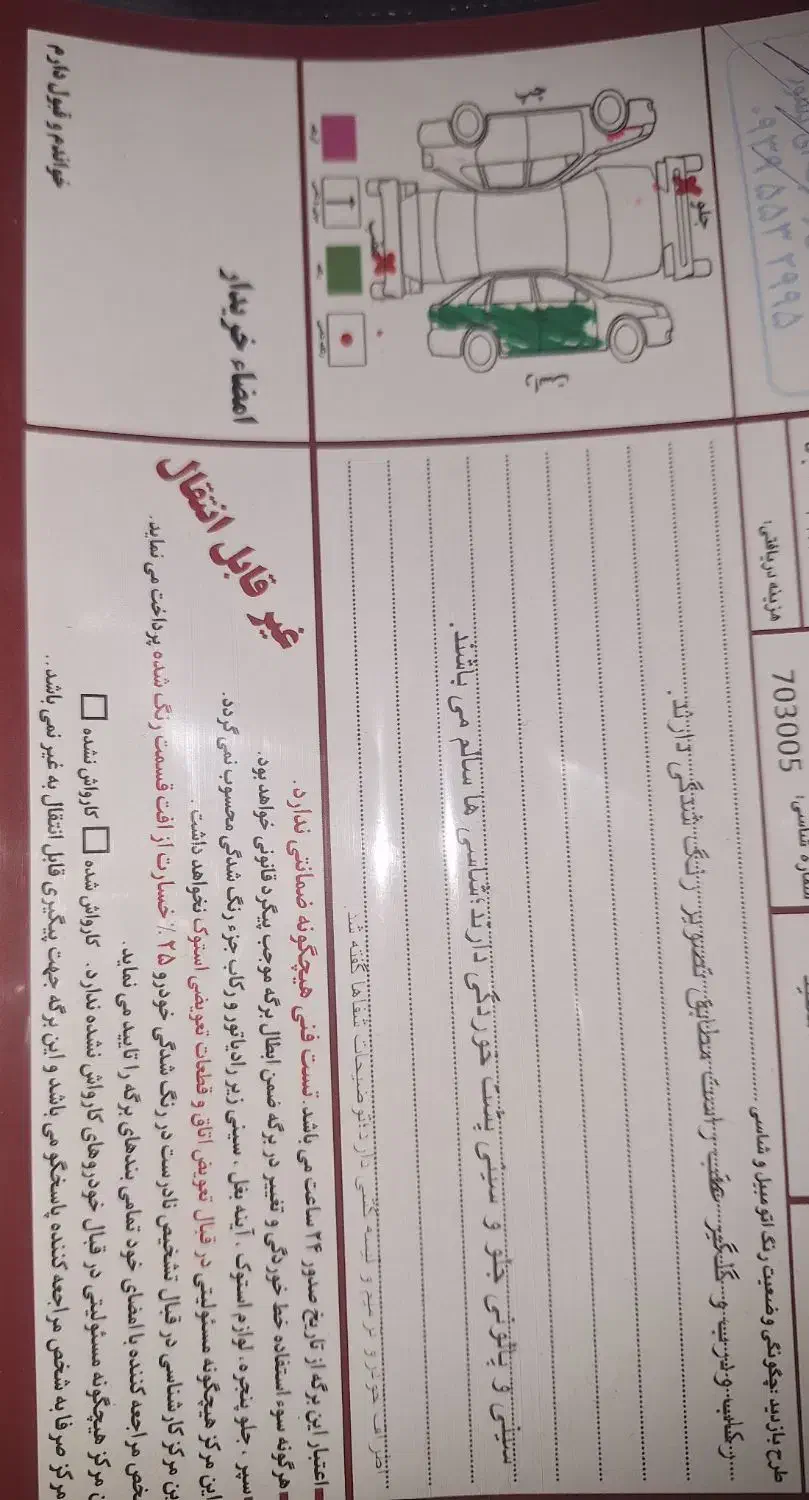 ۰۹۳۹ ۵۵۳ ۲۹۹۵
هزینه دریافتی:
شماره شاسی:
703005
طرح بازدید: چگونگی وضعیت رنگ اتومبیل و شاسی
رکاب و درب و گلگیر عقب راست مطابق تصویر رنگ شدگی دارند.
سینی و پالونی جلو و سینی پشت خوردگی دارند؛شاسی ها سالم می باشند.
اطراف خودرو ترمیم و لیسه گیری دارد؛توضیحات شفاها گفته شد.
جلو
عقب
اعتبار این برگه از تاریخ صدور ۲۴ ساعت می باشد. تست فنی هیچگونه ضمانتی ندارد.
هرگونه سوء استفاده خط خوردگی و تغییر در برگه ضمن ابطال برگه موجب پیگرد قانونی خواهد بود.
سپر ، جلو پنجره، لوازم استوک ، آینه بغل ، سینی زیر رادیاتور و رکاب جزء رنگ شدگی محسوب نمی گردد.
این مرکز هیچگونه مسئولیتی در قبال تعویض اتاق و قطعات تعویضی استوک نخواهد داشت .
ین مرکز کارشناسی در قبال تشخیص نادرست در رنگ شدگی خودرو ۲۵ ٪ خسارت از افت قسمت رنگ شده پرداخت می نماید.
خص مراجعه کننده با امضای خود تمامی بندهای برگه را تایید می نماید.
مرکز هیچگونه مسئولیتی در قبال خودروهای کارواش نشده ندارد. کارواش شده کارواش نشده
مرکز صرفا به شخص مراجعه کننده پاسخگو می باشد و این برگه جهت پیگیری قابل انتقال به غیر نمی باشد..
غیر قابل انتقال
امضاء خریدار
خواندم و قبول دارم